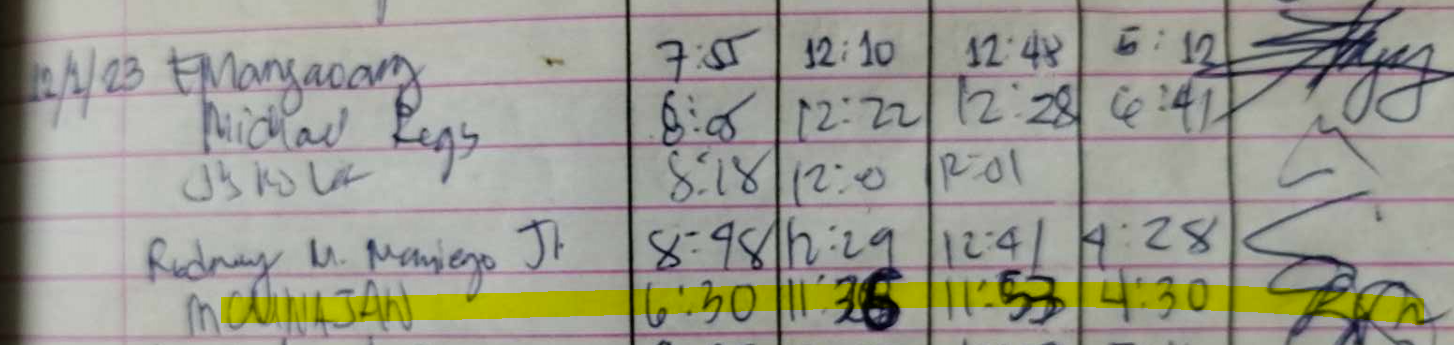 12/1/23 Mangaoang 7:55 12:10 12:48 5:12
Michael Regs 8:05 12:22 12:28 6:41
8:18 12:0 12:01
Rodney M. Maniego Jr 8:48 12:29 12:41 4:28
6:30 11:36 11:53 4:30